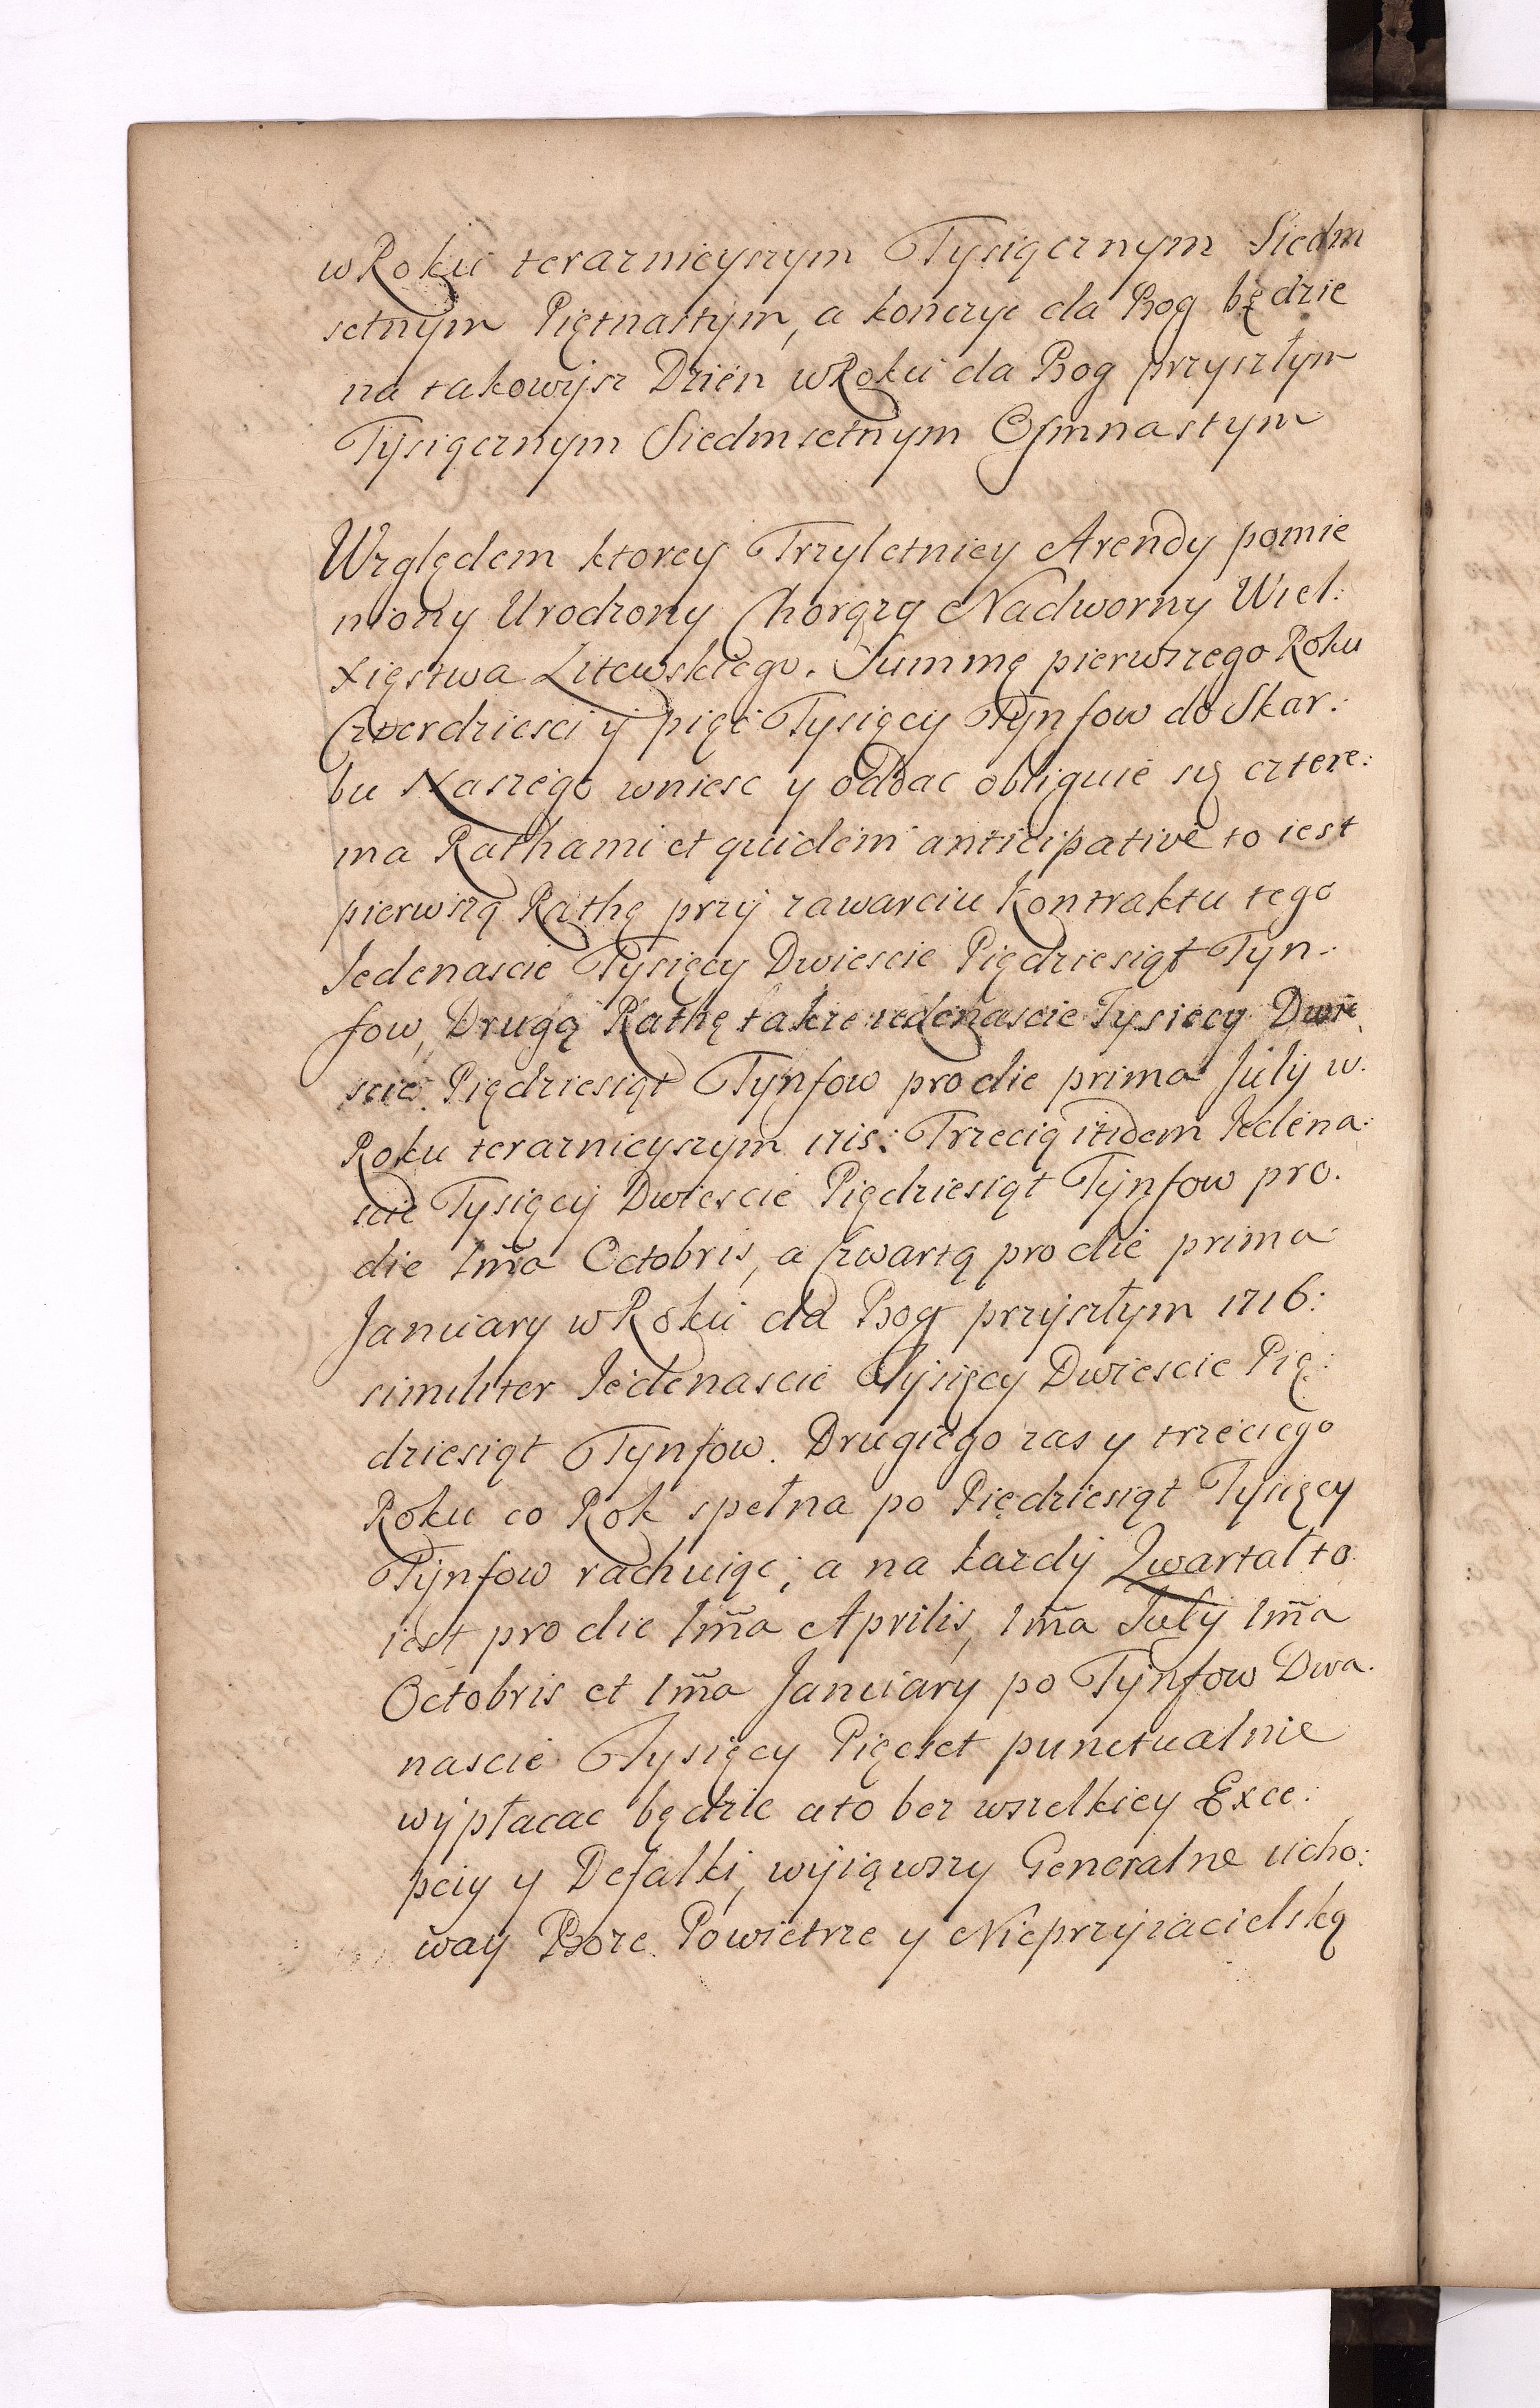 w Roku teraznieyszym Tysiącznym Siedm
setnym Piętnastym, a konczyc da Bog będzie
na takowysz Dzien w Roku da Bog przyszłym
Tysiącznym Siedmsetnym Osmnastym
Względem ktorey Trzyletniey Arendy pomie
niony Urodzony Chorązy Nadworny Wiel:
Xięstwa Litewskiego. Summę pierwszego Roku
Czterdziesci y pięc Tysięcy Tynfow do Skar:
bu Naszego wniesc y oddac obliguie się cztere:
ma Rathami et quidem anticipative to iest
pierwszą Rathę przy zawarciu Kontraktu tego
Jedenascie Tysięcy Dwiescie Piędziesiąt Tyn:
fow, Drugą Rathę takze iedenascie Tysięcy Dwie
scie Piędziesiąt Tynfow pro die prima July w.
Roku teraznieyszym 1715: Trzecią itidem Jedena:
scie Tysięcy Dwiescie Piędziesiąt Tynfow pro.
die 1ma Octobris, a Czwartą pro die prima
January w Roku da Bog przyszłym 1716:
similiter Jedenascie Tysięcy Dwiescie Pię:
dziesiąt Tynfow. Drugiego zas y trzeciego
Roku co Rok spełna po Piędziesiąt Tysięcy
Tynfow rachuiąc; a na kazdy Qwartał to
iest pro die 1ma Aprilis, 1ma July 1ma
Octobris et 1ma January po Tynfow Dwa.
nascie Tysięcy Pięcset punctualnie
wypłacac będzie a to bez wszelkiey Exce:
pciy y Defalki, wyiąwszy Generalne ucho:
way Boze Powietrze y Nieprzyiacielską